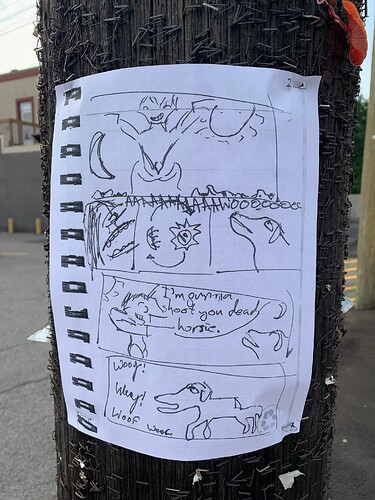 2
AAAAAAAAAWOOOOOOO
I'm gunna
shoot you dead
horsie.
Woof!
Woof woof